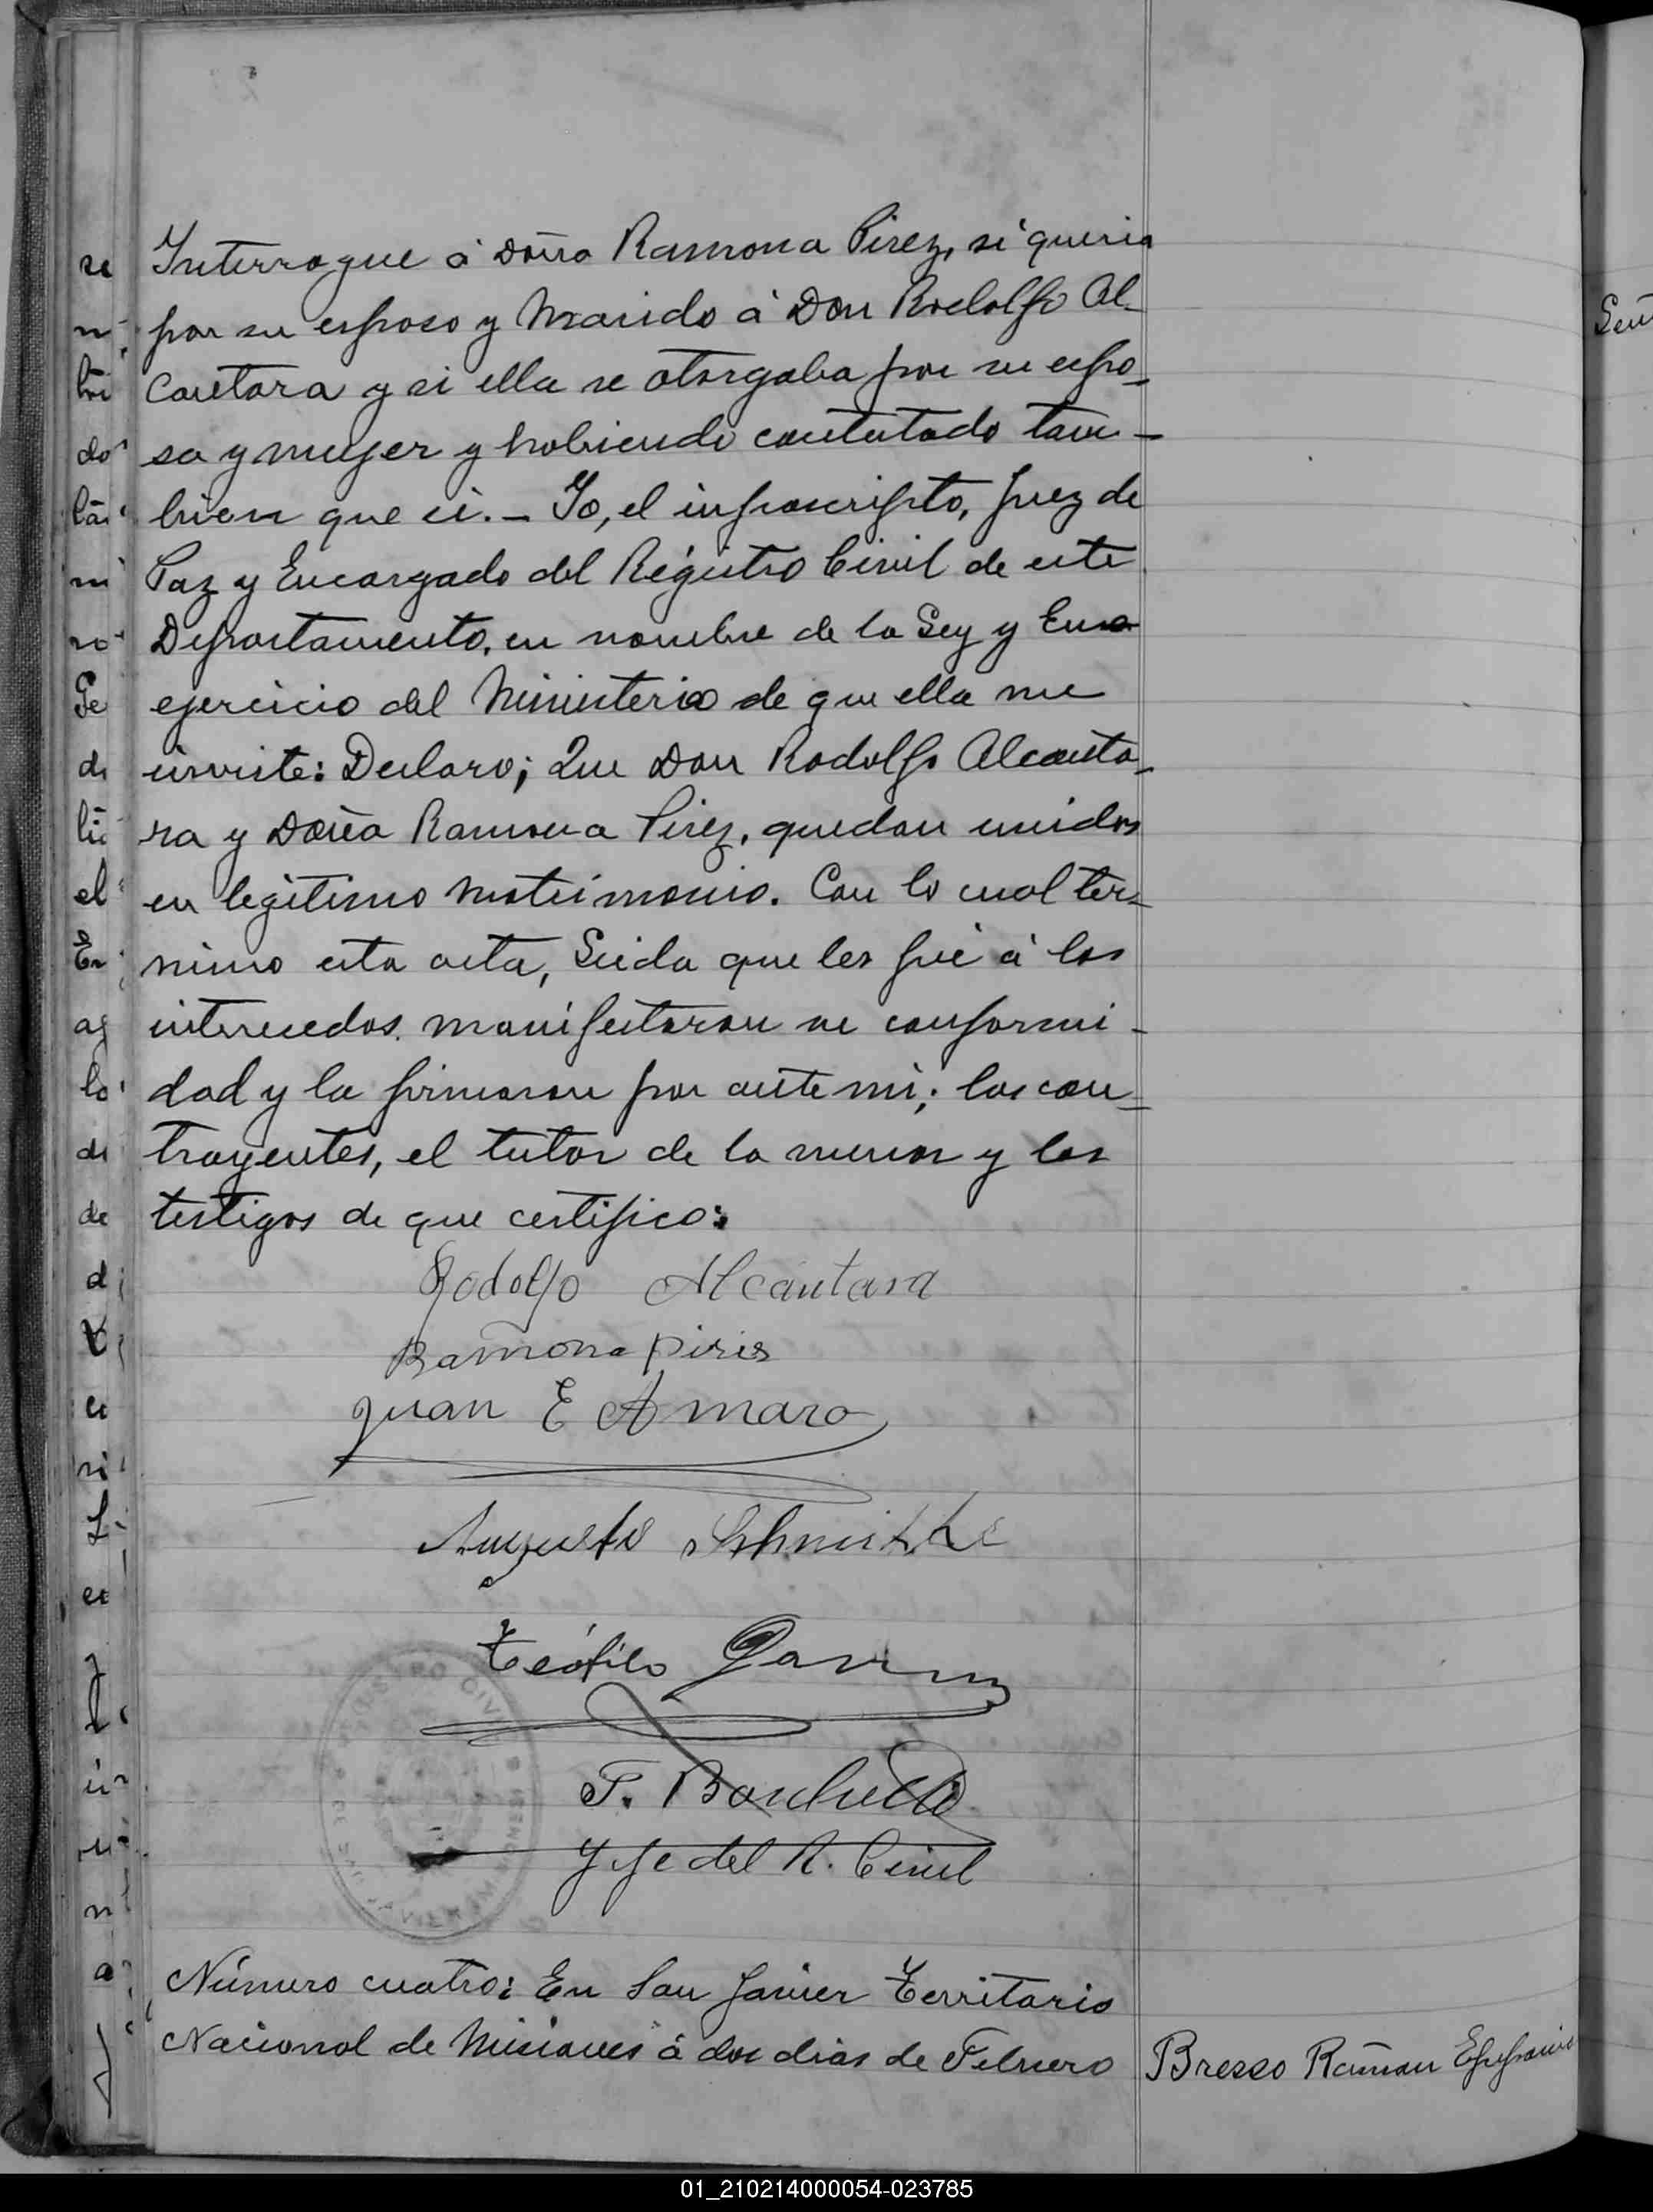 Interrogue á Doña Ramona Pirez, si queria
por su esposo y Marido á Don Rodolfo Al-
cantara y si ella se otorgaba por su espo-
sa y mujer y habiendo contestado tam-
bien que si.- Yo, el infrascripto, Juez de
Paz y Encargado del Régistro Civil de este
Departamento, en nombre de la Ley y En
ejercicio del Ministerio de que ella me
inviste: Declaro; Que Don Rodolfo Alcanta-
ra y Doña Ramona Pirez, quedan unidos
en legitimo Matrimonio. Con lo cual ter-
mino esta acta, Leida que les fué á los
interesados. manifestaron se conformi-
dad y la firmaron por ante mi; los con-
trayentes, el tutor de la menor y los
testigos de que certifico:
Rodolfo Alcantara
Ramona Piris
Juan E Amaro
Augusto
Teófilo
Jefe del R. Civil
REGISTRO CIVIL
Número cuatro: En San Javier Territorio
Nacional de Misiones á dos dias de Febrero
Bresso Ramon
01_210214000054-023785